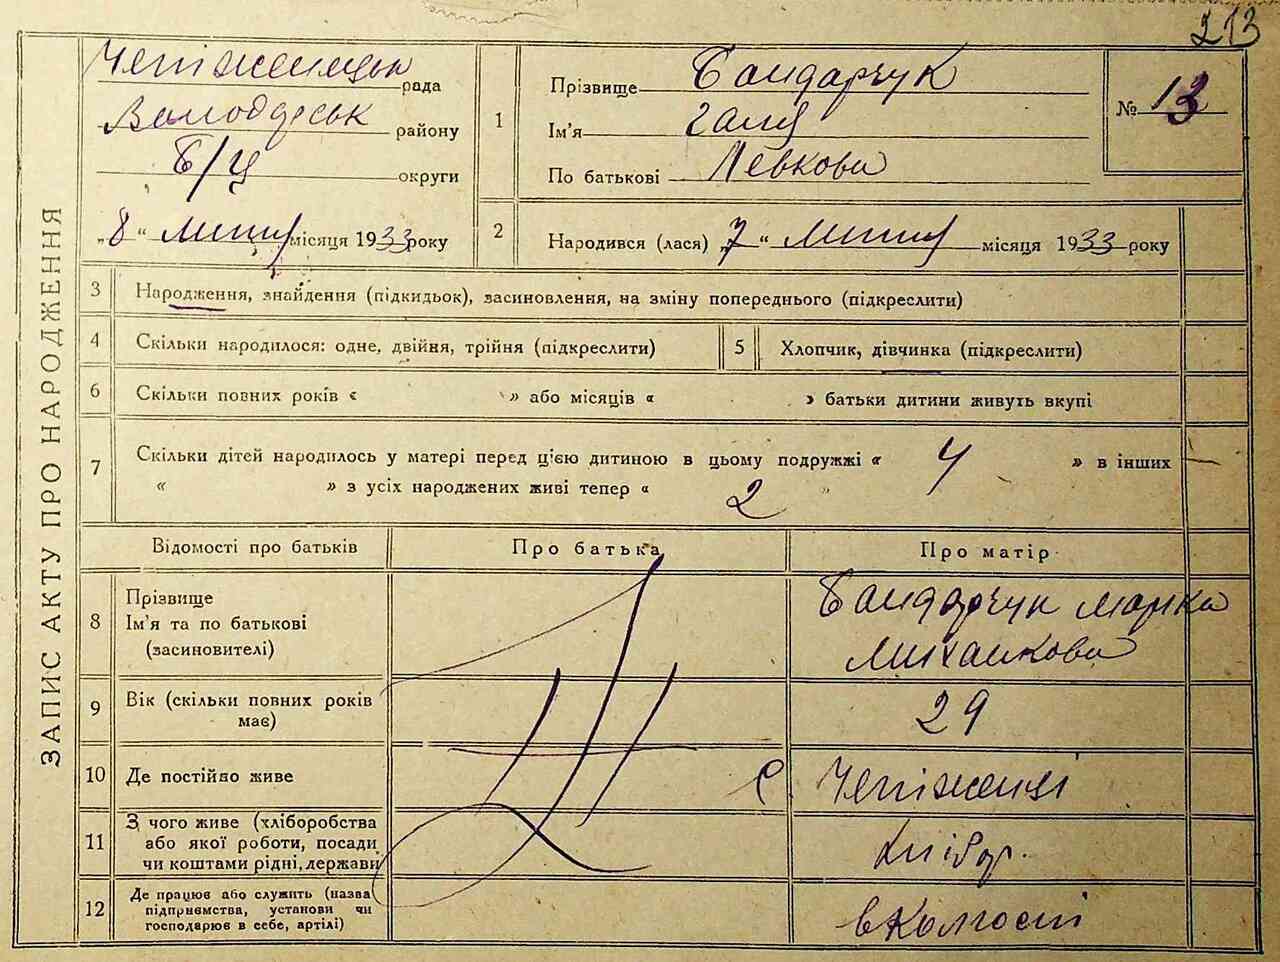 213
ЗАПИС АКТУ ПРО НАРОДЖЕННЯ
рада
Володарськ району
Б/Ц округи
„8“ липня місяця 1933 року
1 Прізвище Бондарчук
Ім'я Галя
По батькові Левкова
№ 13
2 Народився (лася) „7“ липня місяця 1933 року
3 Народження, знайдення (підкидьок), засиновлення, на зміну попереднього (підкреслити)
4 Скільки народилося: одне, двійня, трійня (підкреслити)
5 Хлопчик, дівчинка (підкреслити)
6 Скільки повних років « » або місяців « » батьки дитини живуть вкупі
7 Скільки дітей народилось у матері перед ц'єю дитиною в цьому подружжі « 4 » в інших
« » з усіх народжених живі тепер « 2 »
Відомості про батьків Про батька Про матір
8 Прізвище
Ім'я та по батькові
(засиновителі)
Бондарчук Марія
9 Вік (скільки повних років
має)
29
10 Де постійно живе
с.
11 З чого живе (хліборобства
або якої роботи, посади
чи коштами рідні, держави
хлібор.
12 Де працює або служить (назва
підприємства, установи чи
господарює в себе, артілі)
в колгоспі